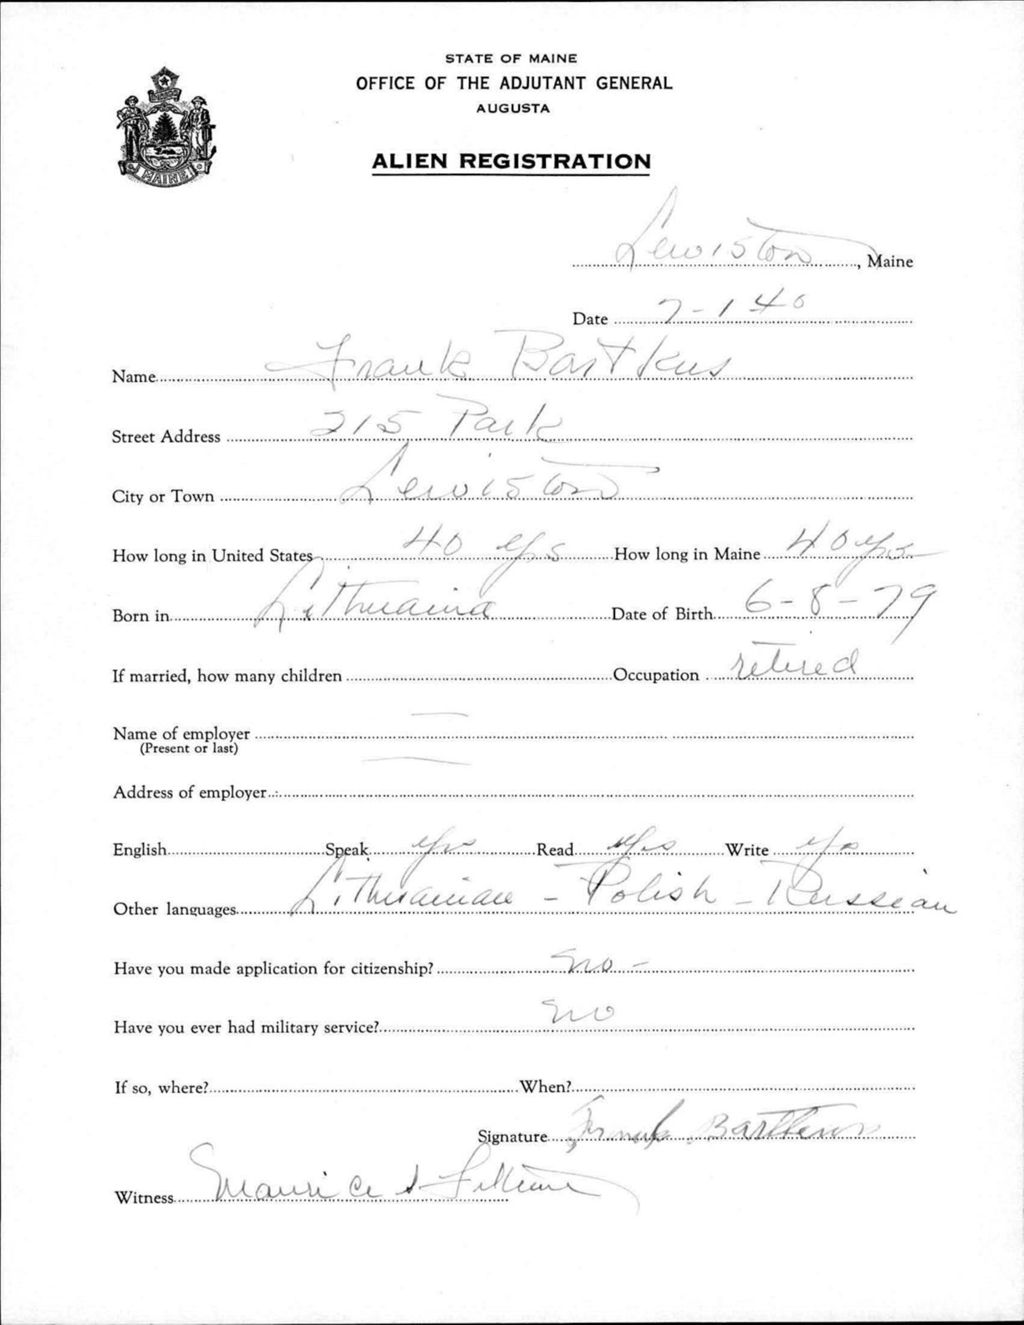 STATE OF MAINE
OFFICE OF THE ADJUTANT GENERAL
AUGUSTA
MAINE
ALIEN REGISTRATION
Lewiston, Maine
Date 7-1 40
Name Frank Bartkus
Street Address 215 Park
City or Town Lewiston
How long in United States 40 yrs How long in Maine 40 yrs
Born in Lithuaina Date of Birth 6-8-79
If married, how many children Occupation retired
Name of employer —
(Present or last)
Address of employer —
English Speak yes Read yes Write yes
Other languages Lithuainian - Polish - Russian
Have you made application for citizenship? no -
Have you ever had military service? no
If so, where? When?
Signature Frank Bartkus
Witness Maurice